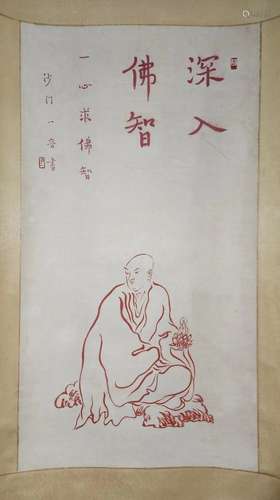 深入
佛智
一心求佛智
沙门一音书